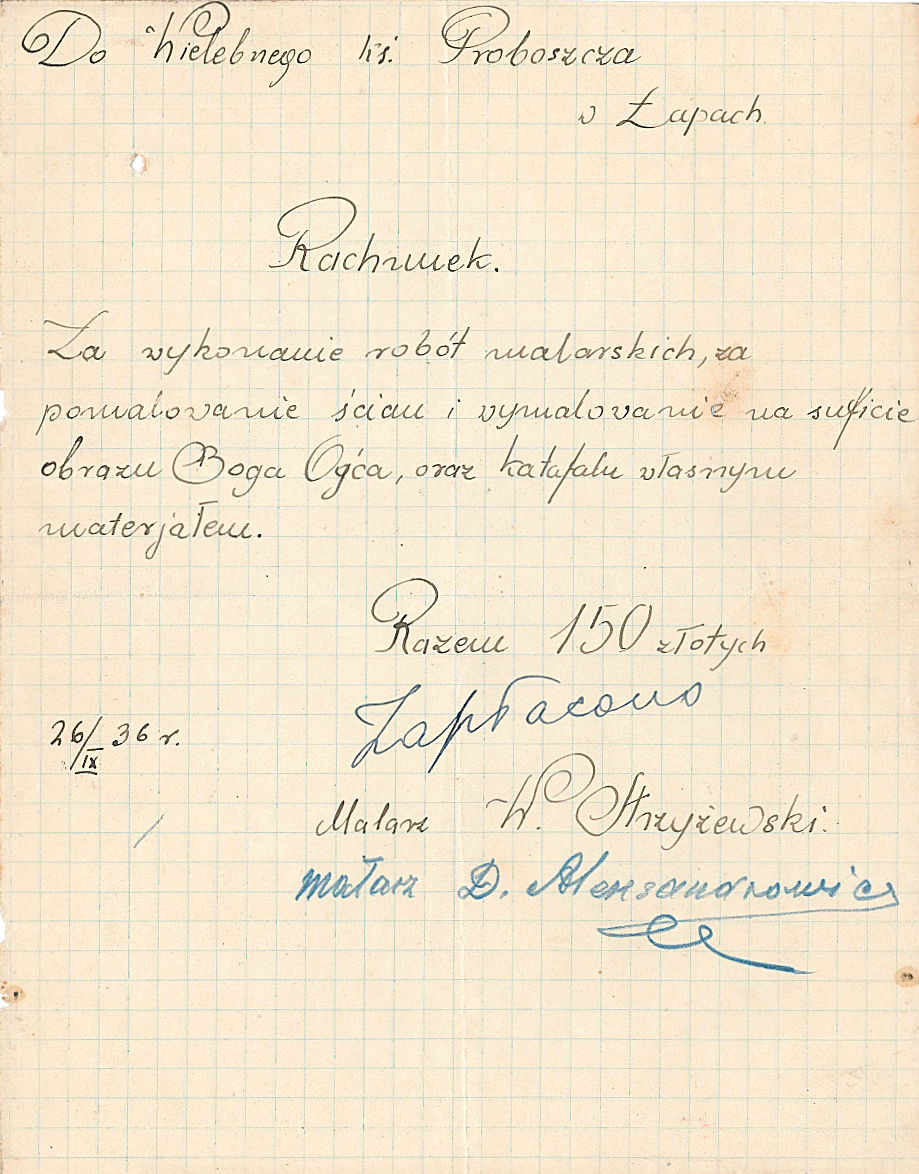 Do Wielebnego ks. Proboszcza
w Łapach
Rachunek.
Za wykonanie robót malarskich, za
pomalowanie ścian i wymalowanie na suficie
obrazu Boga Ojća, oraz katafalu własnym
materjałem.
Razem 150 złotych
Zapłacono
26/IX 36 r.
Malarz W. Strzyżewski.
małarz D. Aleksandrowicz